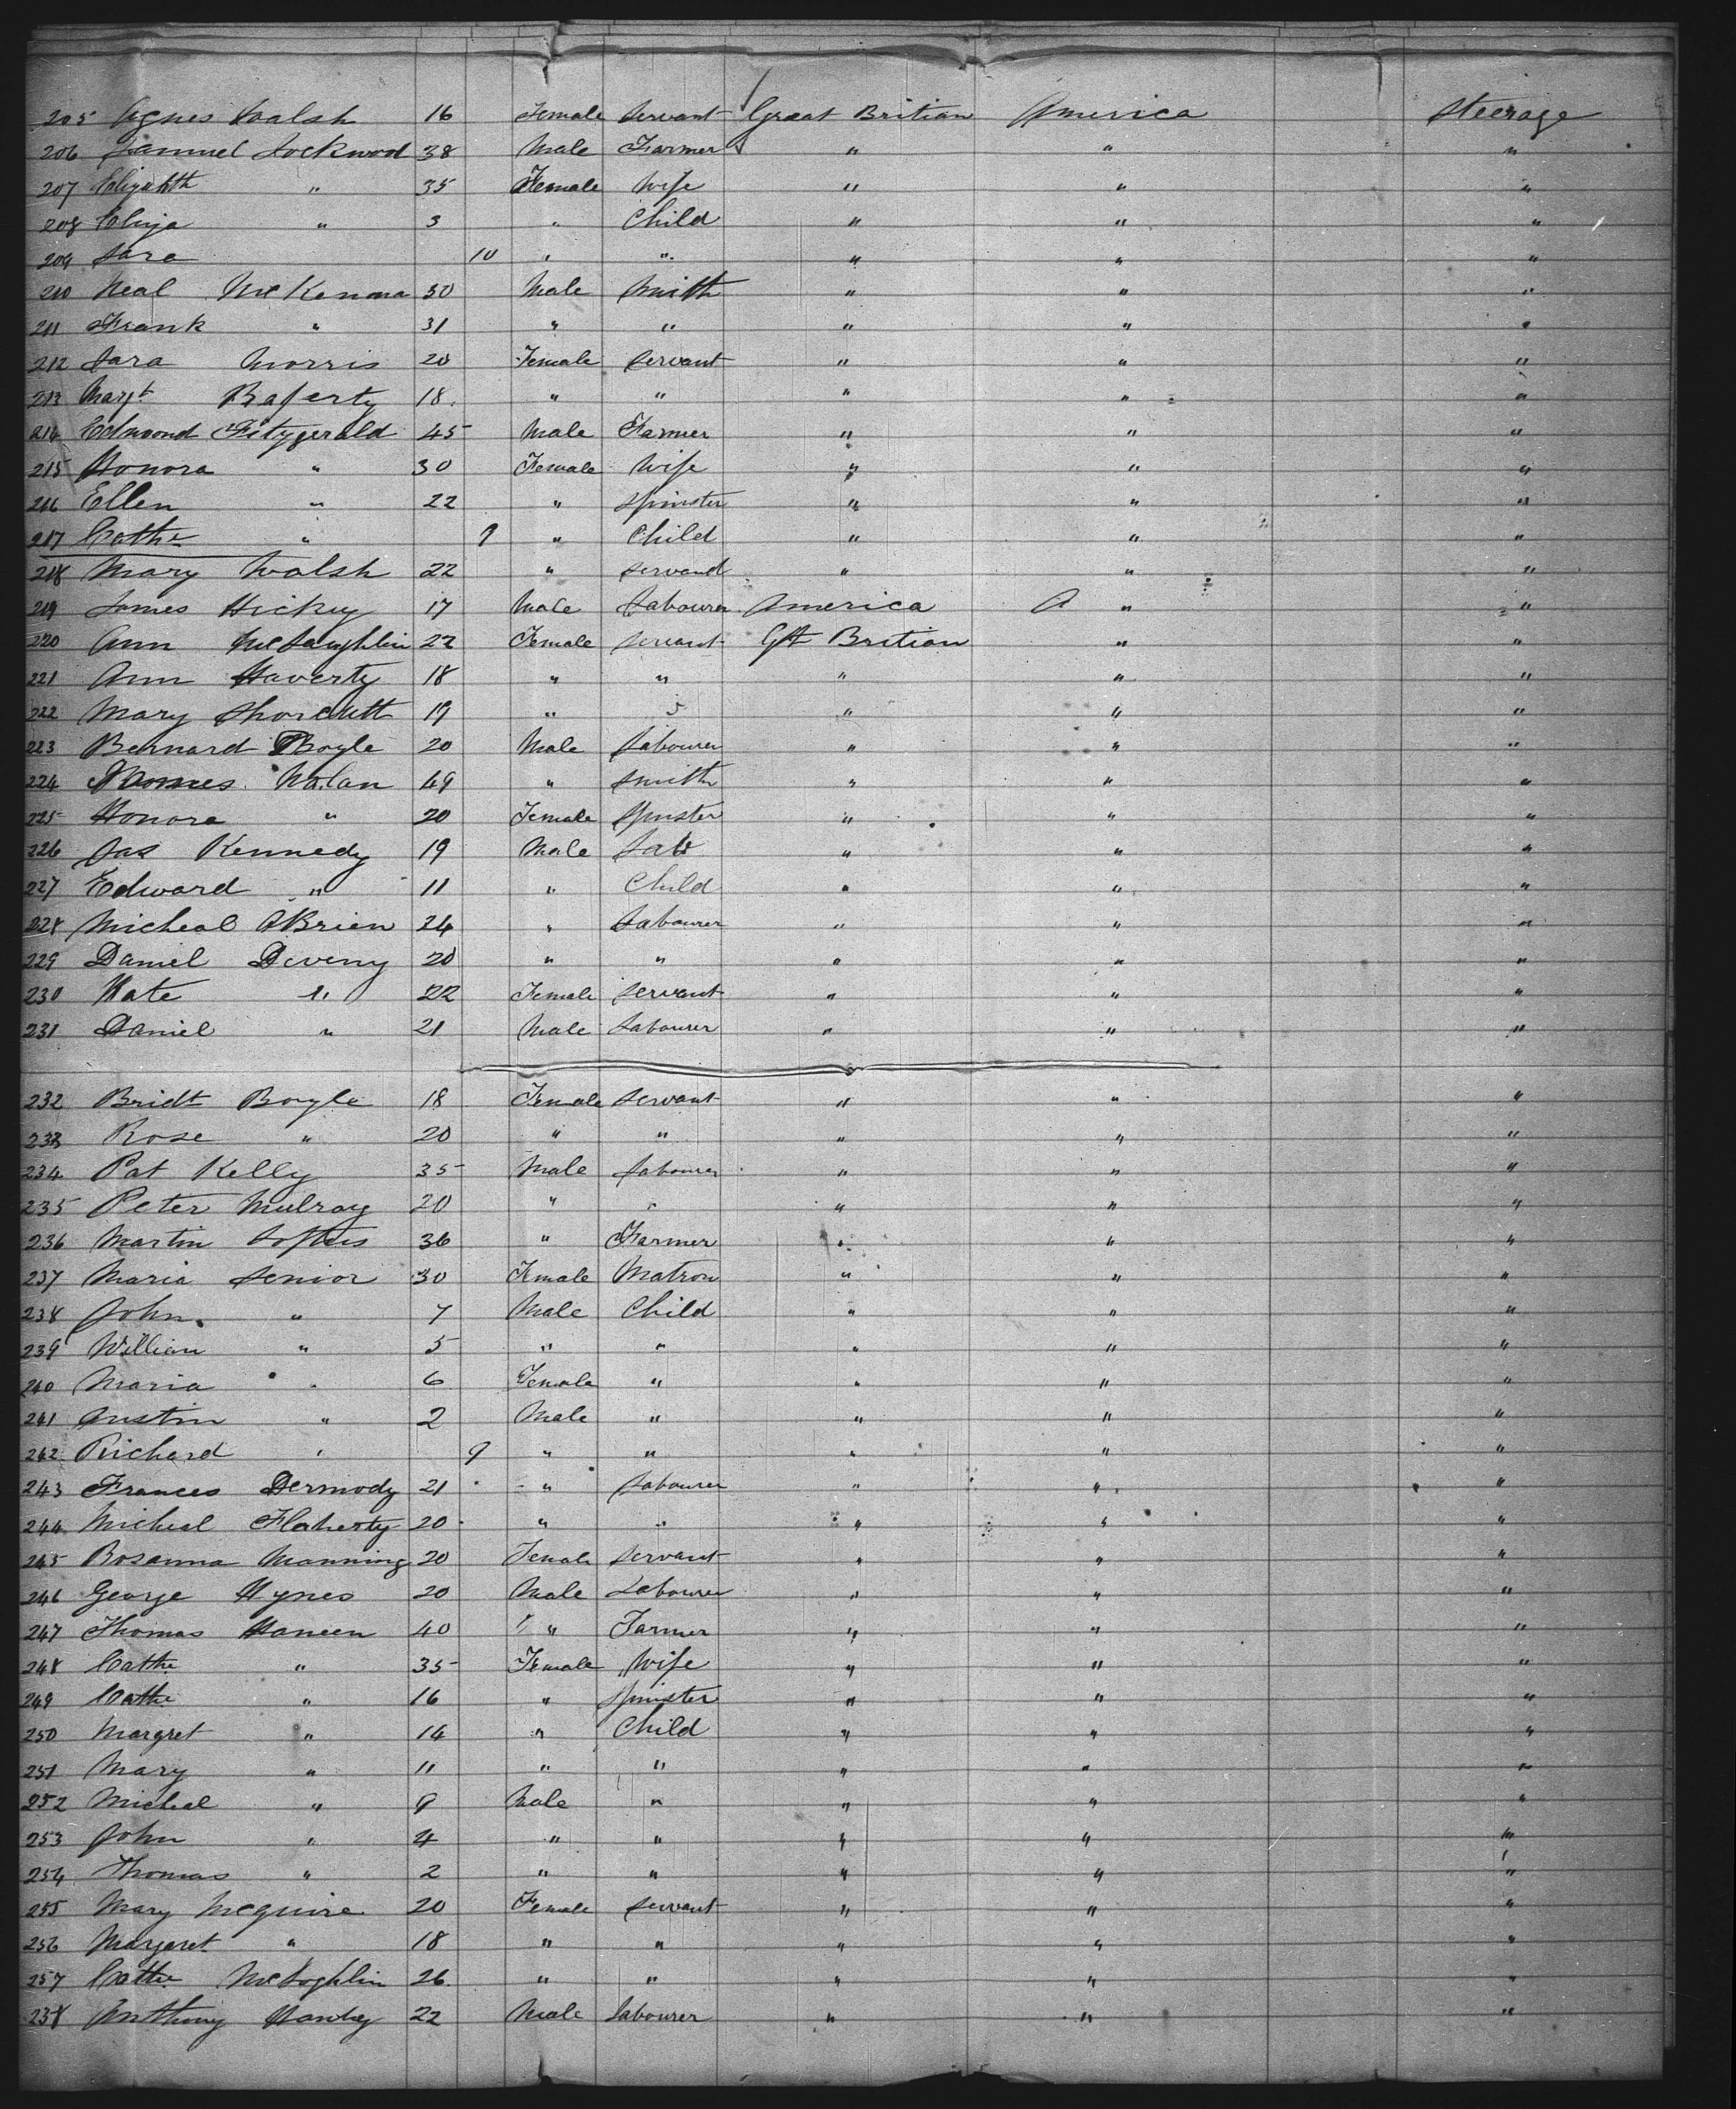 205 Agnes Walsh 16 Female Servant Great Britian America Steerage
206 Samuel Lockwood 38 Male Farmer " " "
207 Elizabth " 35 Female Wife " " "
208 Eliza " 3 " Child " " "
209 Sara 10 " " " " "
210 Neal McKenna 30 Male Smith " " "
211 Frank " 31 " " " " "
212 Sara Morris 20 Female Servant " " "
213 Margt Raferty 18 " " " " "
214 Edmond Fitzgerald 45 Male Farmer " " "
215 Honora " 30 Female Wife " " "
216 Ellen " 22 " Spinster " " "
217 Cathe " 9 " Child " " "
218 Mary Walsh 22 " Servand " " "
219 James Hickey 17 Male Labourer America A " "
220 Ann McLaughlin 22 Female Servant Gt Britian " "
221 Ann Haverty 18 " " " " "
222 Mary 19 " " " " "
223 Bernard Boyle 20 Male Labourer " " "
224 Thomas Nolan 49 " Smith " " "
225 Honora " 20 Female Spinster " " "
226 Jas Kennedy 19 Male Labr " " "
227 Edward " 11 " Child " " "
228 Micheal OBrien 24 " Labourer " " "
229 Daniel Deveny 20 " " " " "
230 Kate " 22 Female Servant " " "
231 Daniel " 21 Male Labourer " " "
232 Bridt Boyle 18 Female Servant " " "
233 Rose " 20 " " " " "
234 Pat Kelly 35 Male Labourer " " "
235 Peter Mulroy 20 " " " " "
236 Martin Loftus 36 " Farmer " " "
237 Maria Senior 30 Female Matron " " "
238 John " 7 Male Child " " "
239 William " 5 " " " " "
240 Maria " 6 Female " " " "
241 Austin " 2 Male " " " "
242 Richard " 9 " " " " "
243 Frances Dermody 21 " Labourer " " "
244 Micheal Flaherty 20 " " " " "
245 Rosanna Manning 20 Female Servant " " "
246 George Hynes 20 Male Labourer " " "
247 Thomas Haneen 40 " Farmer " " "
248 Cathe " 35 Female Wife " " "
249 Cathe " 16 " Spinister " " "
250 Margret " 14 " Child " " "
251 Mary " 11 " " " " "
252 Micheal " 9 Male " " " "
253 John " 4 " " " " "
254 Thomas " 2 " " " " "
255 Mary McGuire 20 Female Servant " " "
256 Margaret " 18 " " " " "
257 Cathe McLoghlin 26 " " " " "
258 Anthony 22 Male Labourer " " "